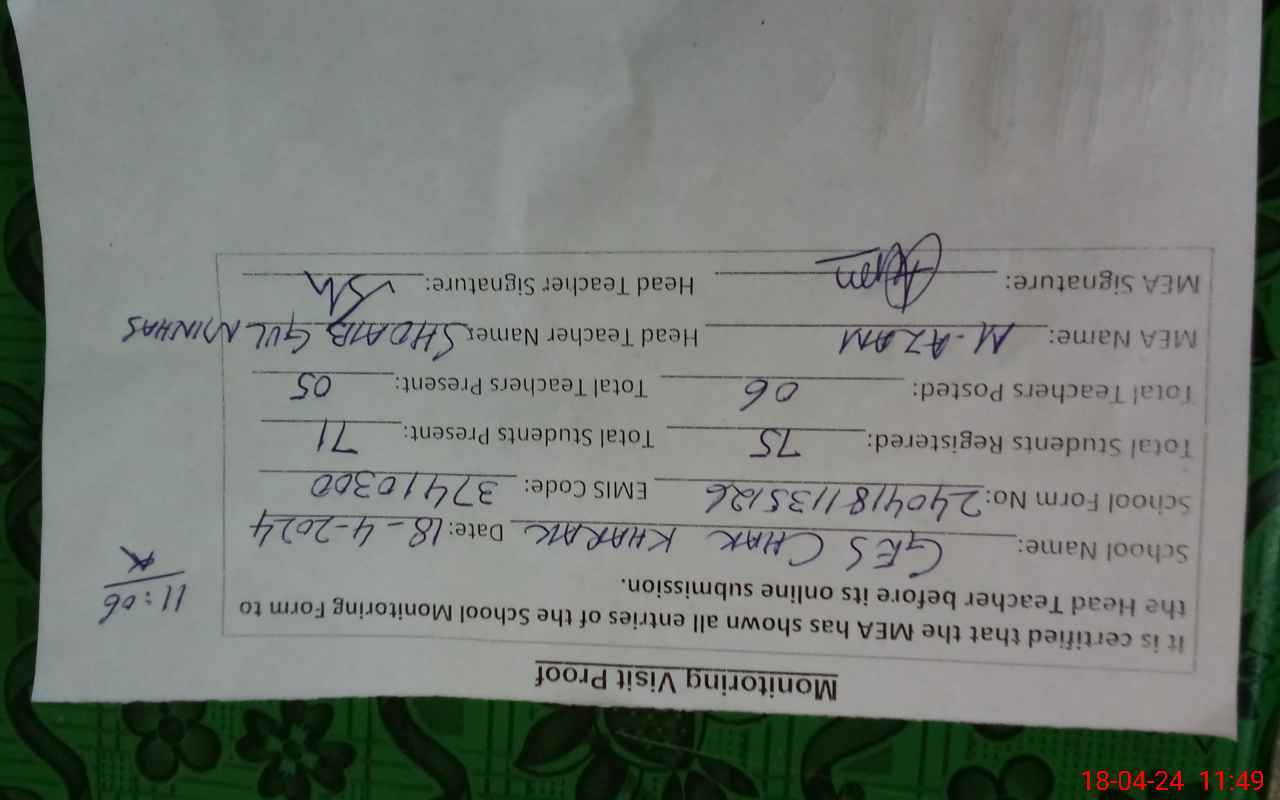 Monitoring Visit Proof
It is certified that the MEA has shown all entries of the School Monitoring Form to
the Head Teacher before its online submission.
11:06
School Name: GES CHAK KHARAK Date: 18-4-2024
School Form No: 2404181135126 EMIS Code: 37410300
Total Students Registered: 75 Total Students Present: 71
Total Teachers Posted: 06 Total Teachers Present: 05
MEA Name: M-AZAM Head Teacher Name: SHOAIB GUL MINHAS
MEA Signature: Head Teacher Signature:
18-04-24 11:49